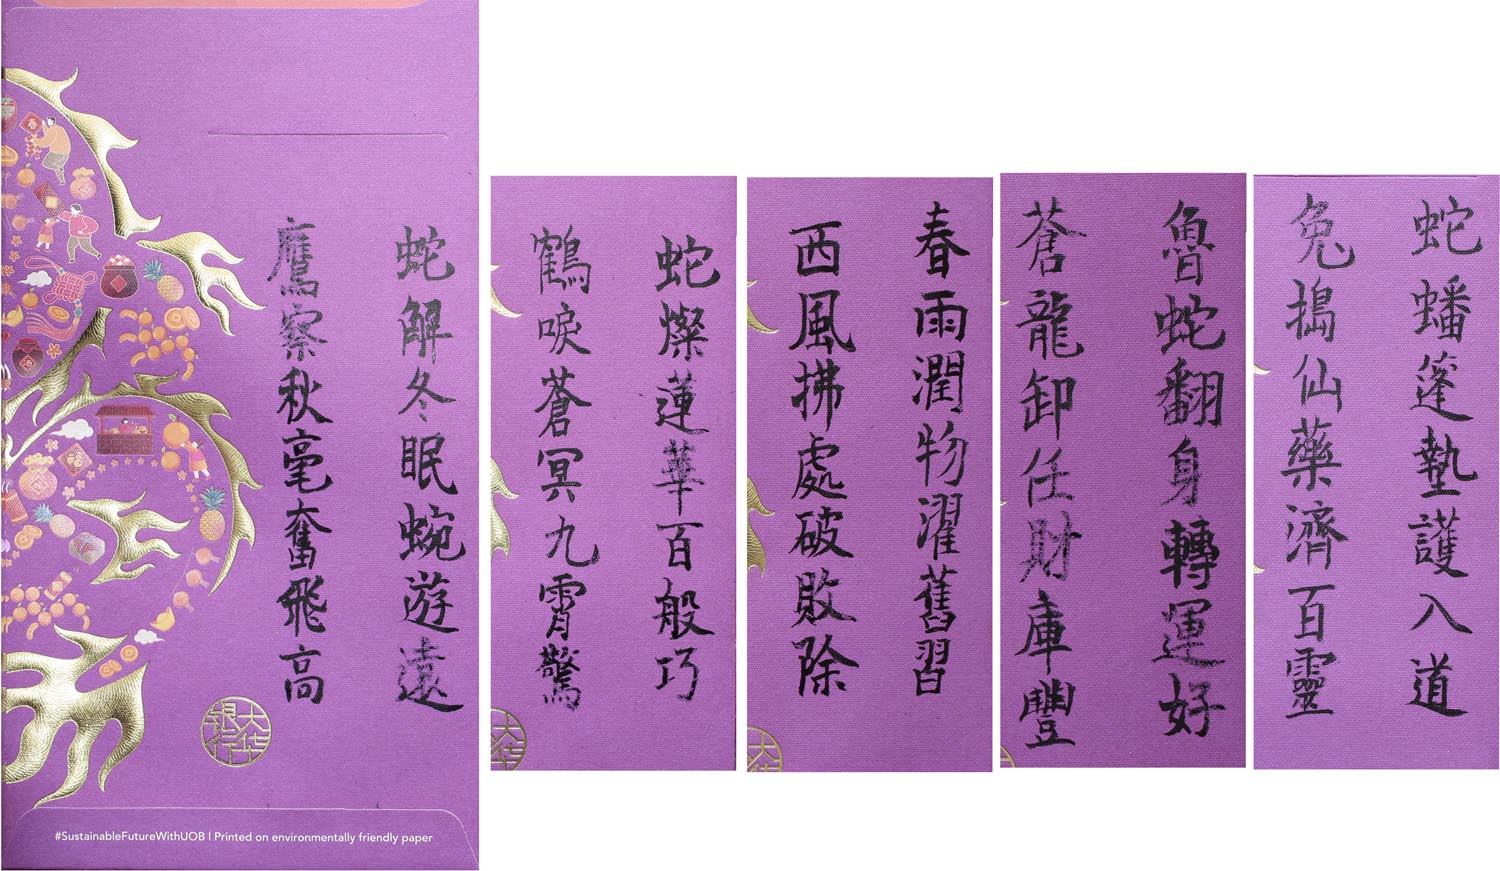 蛇解冬眠蜿遊遠
鷹察秋毫奮飛高
大华银行
#SustainableFutureWithUOB | Printed on environmentally friendly paper
蛇燦蓮華百般巧
鶴唳蒼冥九霄驚
春雨潤物濯舊習
西風拂處破敗除
魯蛇翻身轉運好
蒼龍卸任財庫豐
蛇蟠篷墊護入道
兔搗仙藥濟百靈